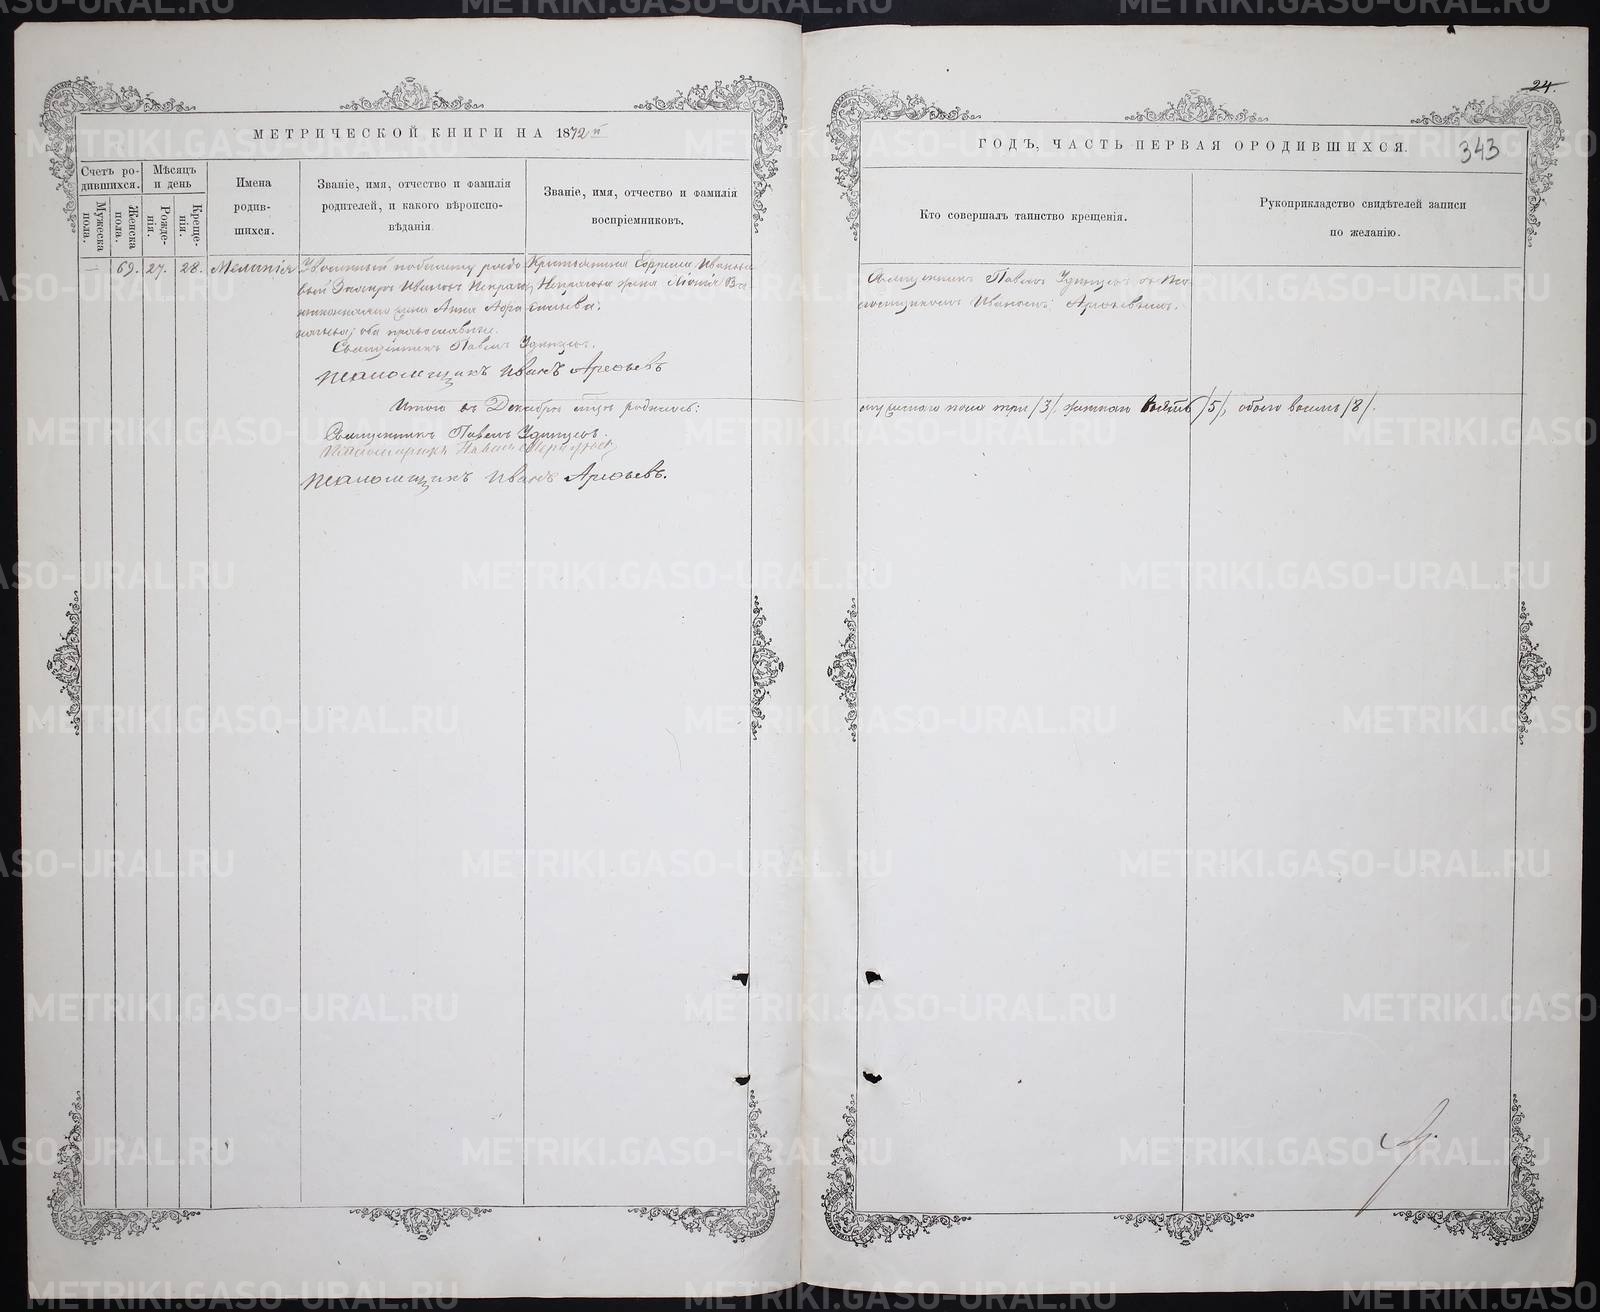 24.
343
МЕТРИЧЕСКОЙ КНИГИ НА 1872 й
ГОДЪ, ЧАСТЬ ПЕРВАЯ О РОДИВШИХСЯ.
Счетъ ро-
дившихся.
Мужеска
пола.
Женска
пола.
Мѣсяцъ
и день
Рожде-
нія.
Креще-
нія.
Имена
родив-
шихся.
Званіе, имя, отчество и фамилія
родителей, и какого вѣроиспо-
вѣданія.
Званіе, имя, отчество и фамилія
воспріемниковъ.
Кто совершалъ таинство крещенія.
Рукоприкладство свидѣтелей записи
по желанію.
— 69. 27. 28. Меланія
Уволенный побилету рядо
вый Ивановъ
жена Анна
оба православные.
Крестьянина Ивана
жена Василь
Священникъ Павелъ Удинцовъ съ
Иваномъ Арефьевымъ.
Священникъ Павелъ Удинцовъ.
Псаломщикъ Иванъ Арефьевъ
Итого въ Декабрѣ м-цѣ родилось:
мужескаго пола три /3/, женскаго пять /5/, обоего восемь /8/.
Священникъ Павелъ Удинцовъ.
Псаломщикъ Иванъ Арефьевъ.
METRIKI.GASO-URAL.RU